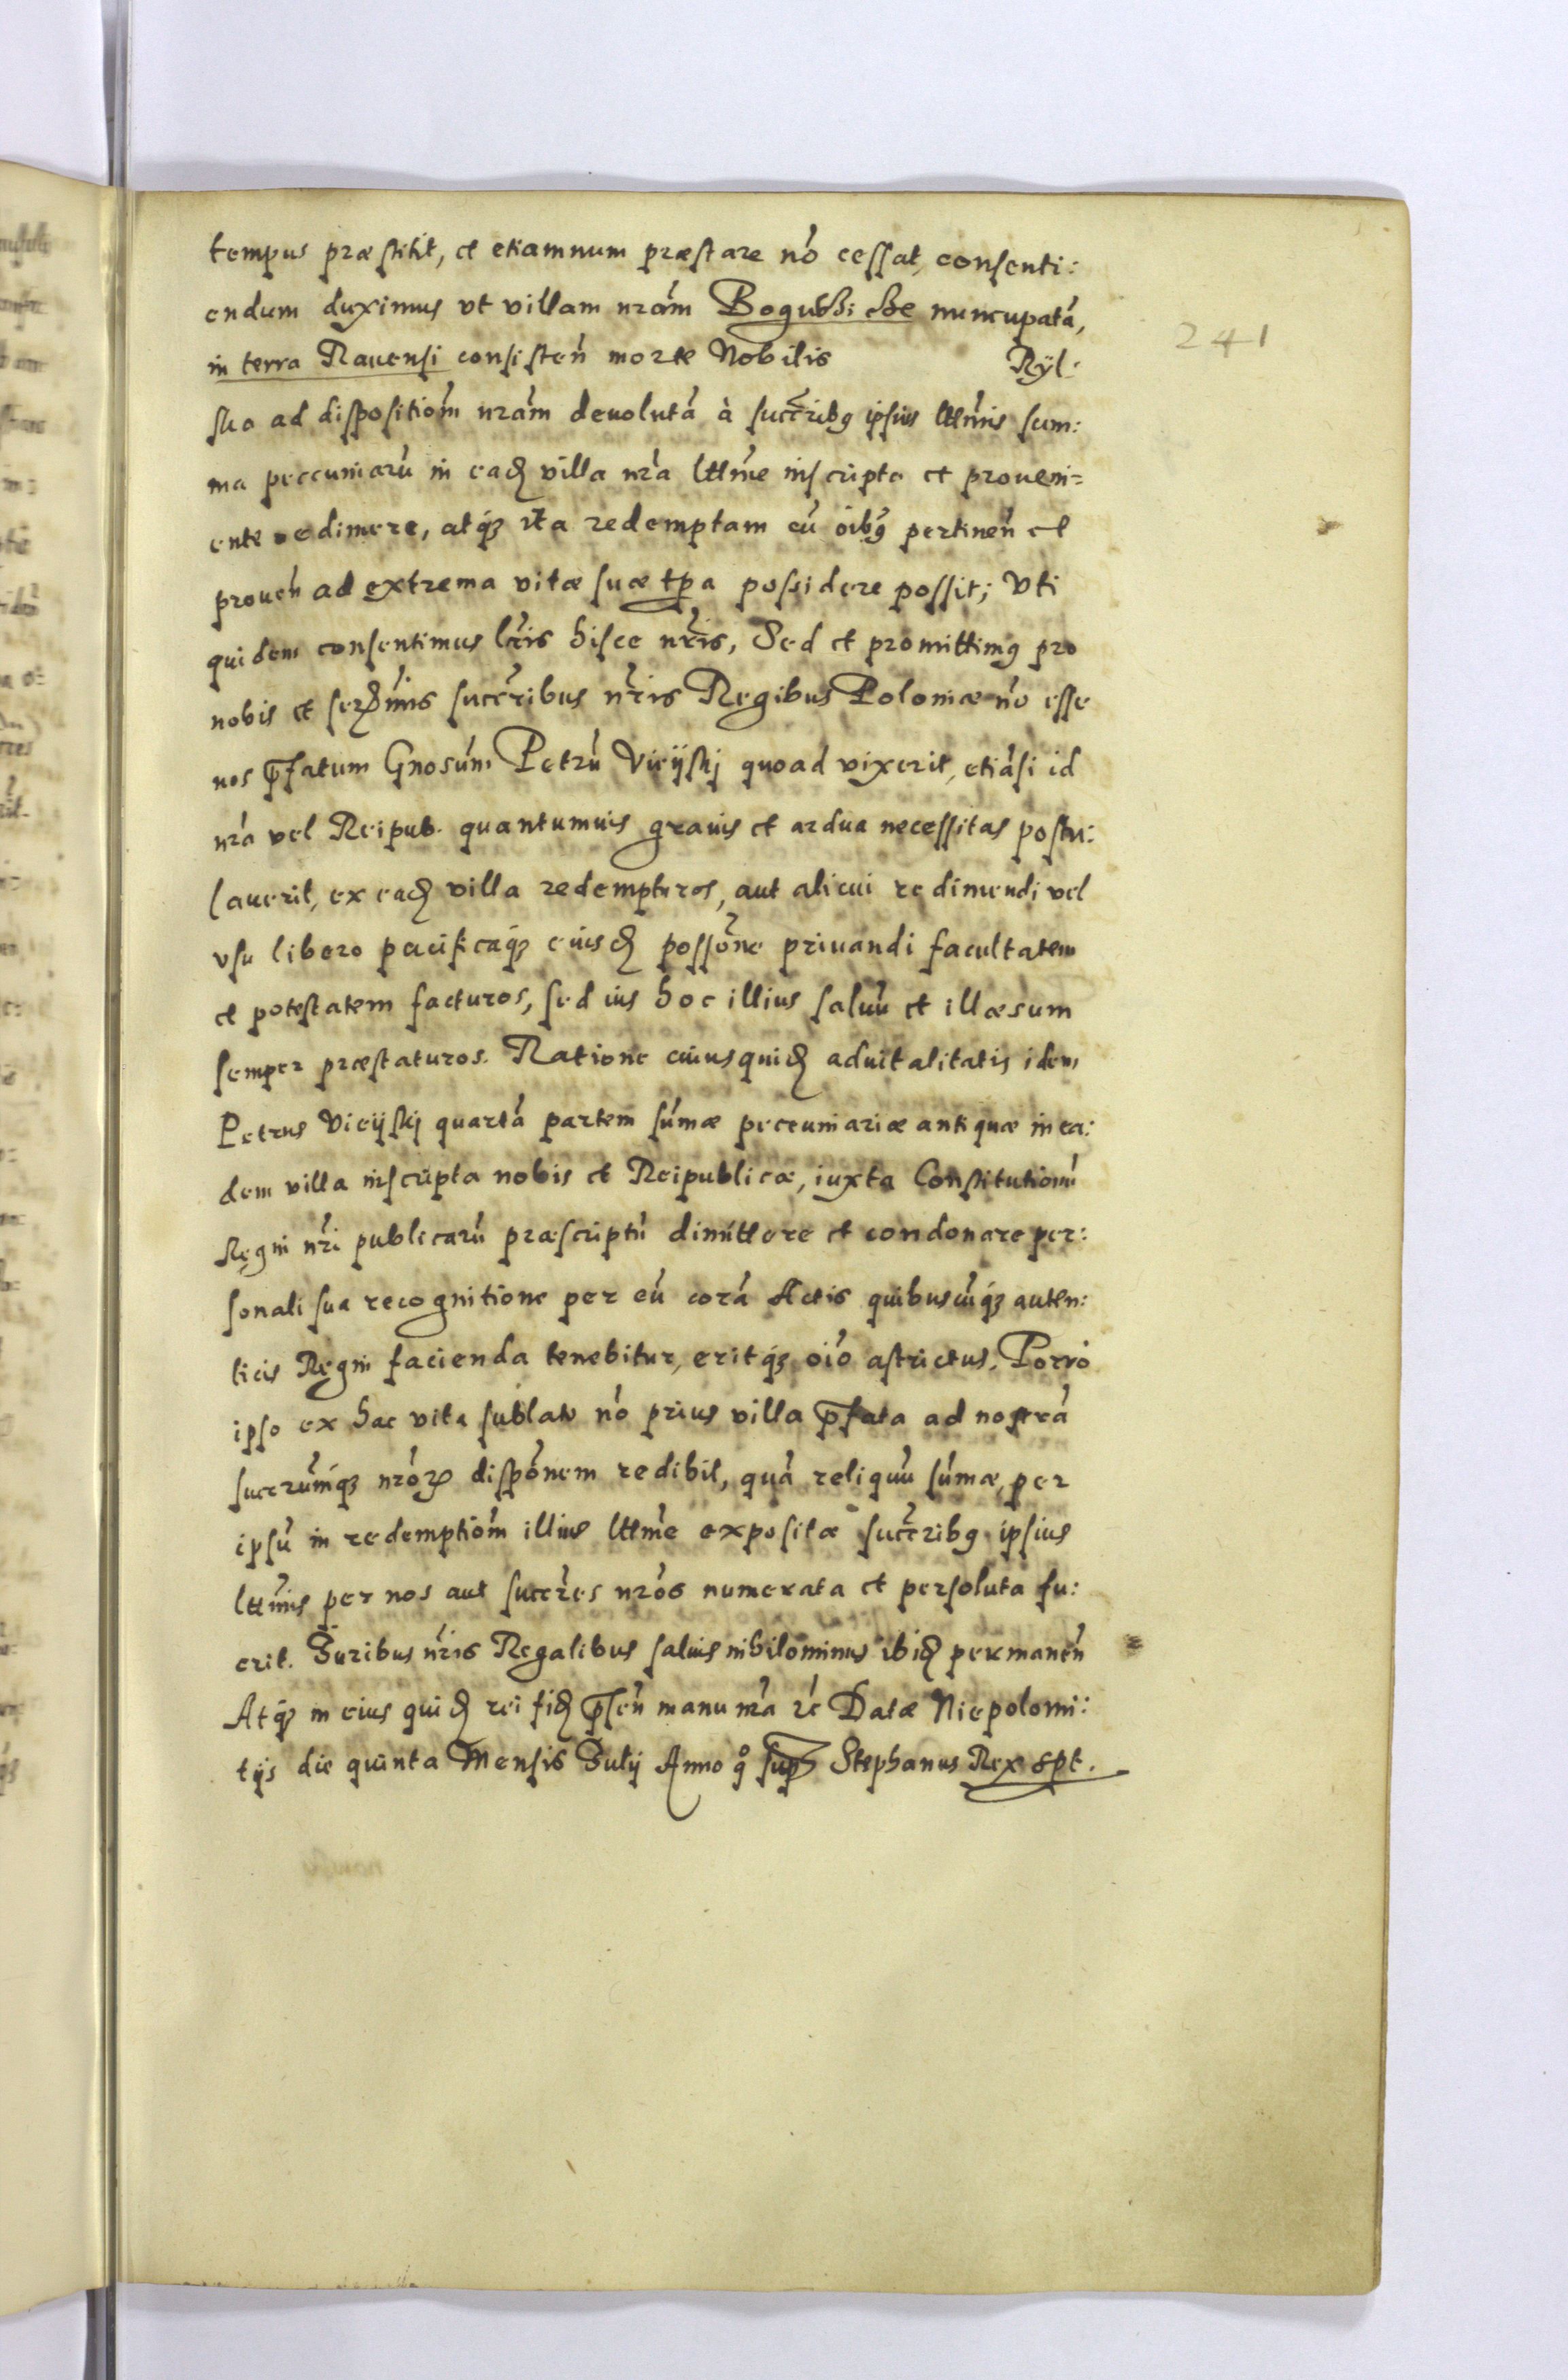 tempus præstitit, et etiamnum præstare nō cessat, consenti:
endum duximus vt villam nrām nuncupatā,
241
in terra Rauensi consisteñ morte Nobilis Rÿl:
ska ad dispositiōm nrām deuolutā à succribꝯ ipsius lttīmis sum:
ma peccuniarū in eadꝫ villa nrā lttīme inscripta et proueni=
ente redimere, atq́ꝫ ita redemptam cū oībꝯ pertineñ et
proueñ ad extrema vitæ suæ tp̄a possidere possit; Vti
quidem consentimus lris hisce nrīs, Sed et promittimꝯ pro
nobis et serꝫmis succribus nrīs Regibus Poloniæ nō esse
nos p̄fatum Gnosūm Petrū Vieÿskj quoad vixerit, etiāsi id
nrā vel Reipub. quantumuis grauis et ardua necessitas postu:
lauerit, ex eadꝫ villa redempturos, aut alicui redimendi vel
vsu libero pacificaq́ꝫ eiusdꝫ possōne priuandi facultatem
et potestatem facturos, sed ius hoc illius saluū et illæsum
semper præstaturos. Ratione cuiusquidꝫ aduitalitatis idem
Petrus Vieÿskj quartā partem sūmæ peccuniariæ antiquæ in ea:
dem villa inscripta nobis et Reipublicæ, iuxta Constitutionū
Regni nrī publicarū præscriptū dimittere et condonare per:
sonali sua recognitione per eū corā Actis quibuscūq́ꝫ auten:
ticis Regni facienda tenebitur, eritq́ꝫ oīo astrictus. Porrò
ipso ex hac vita sublato nō prius villa p̄fata ad nostrā
succrumq́ꝫ nrōꝝ dispōnem redibit, quā reliquū sūmæ, per
ipsū in redemptiōm illius lttīme expositæ succribꝯ ipsius
lttīmis per nos aut succres nrōs numerata et persoluta fu:
erit. Juribus nrīs Regalibus saluis nihilominus ibidꝫ permaneñ
Atq́ꝫ in eius quidꝫ rei fidꝫ p̄señ manu nrā rc̄ Datæ Niepolomi:
tijs die quinta Mensis Julij Anno qͦ sup̄ Stephanus Rex spt.